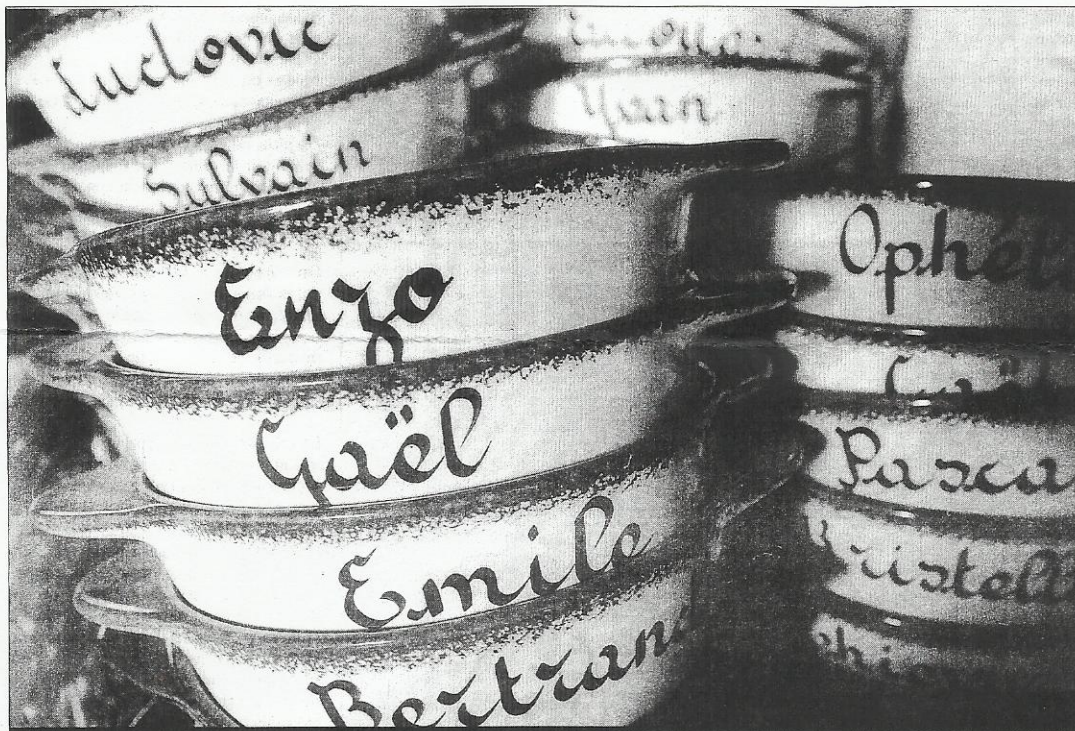 Ludovic
Sylvain
Enzo
Gaël
Emile
Bertran
Yvan
Ophél
Gaël
Pasca
ristell